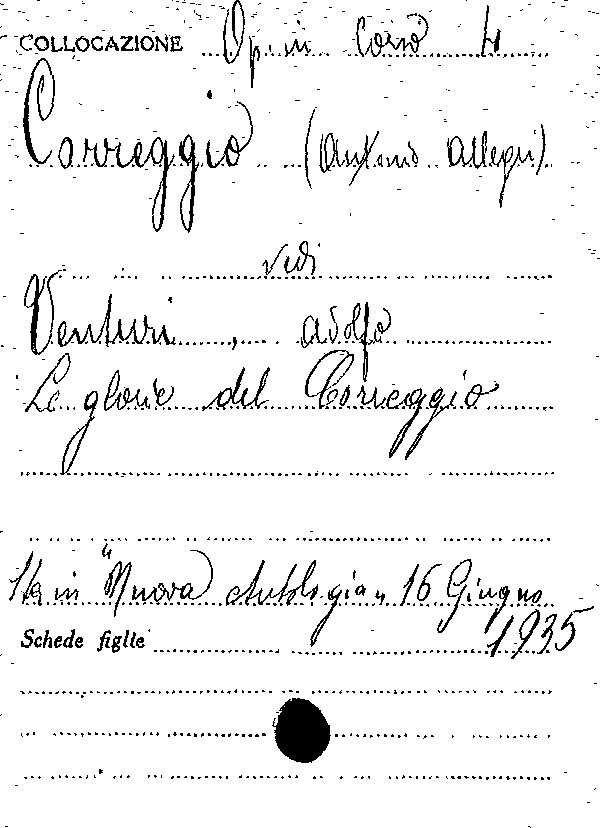 COLLOCAZIONE Op. in Corso 4
Correggio (Antonio Allegri)
vedi
Venturi, Adolfo
Le glorie del Correggio
Sta in "Nuova Antologia" 16 Giugno
1935
Schede figlie